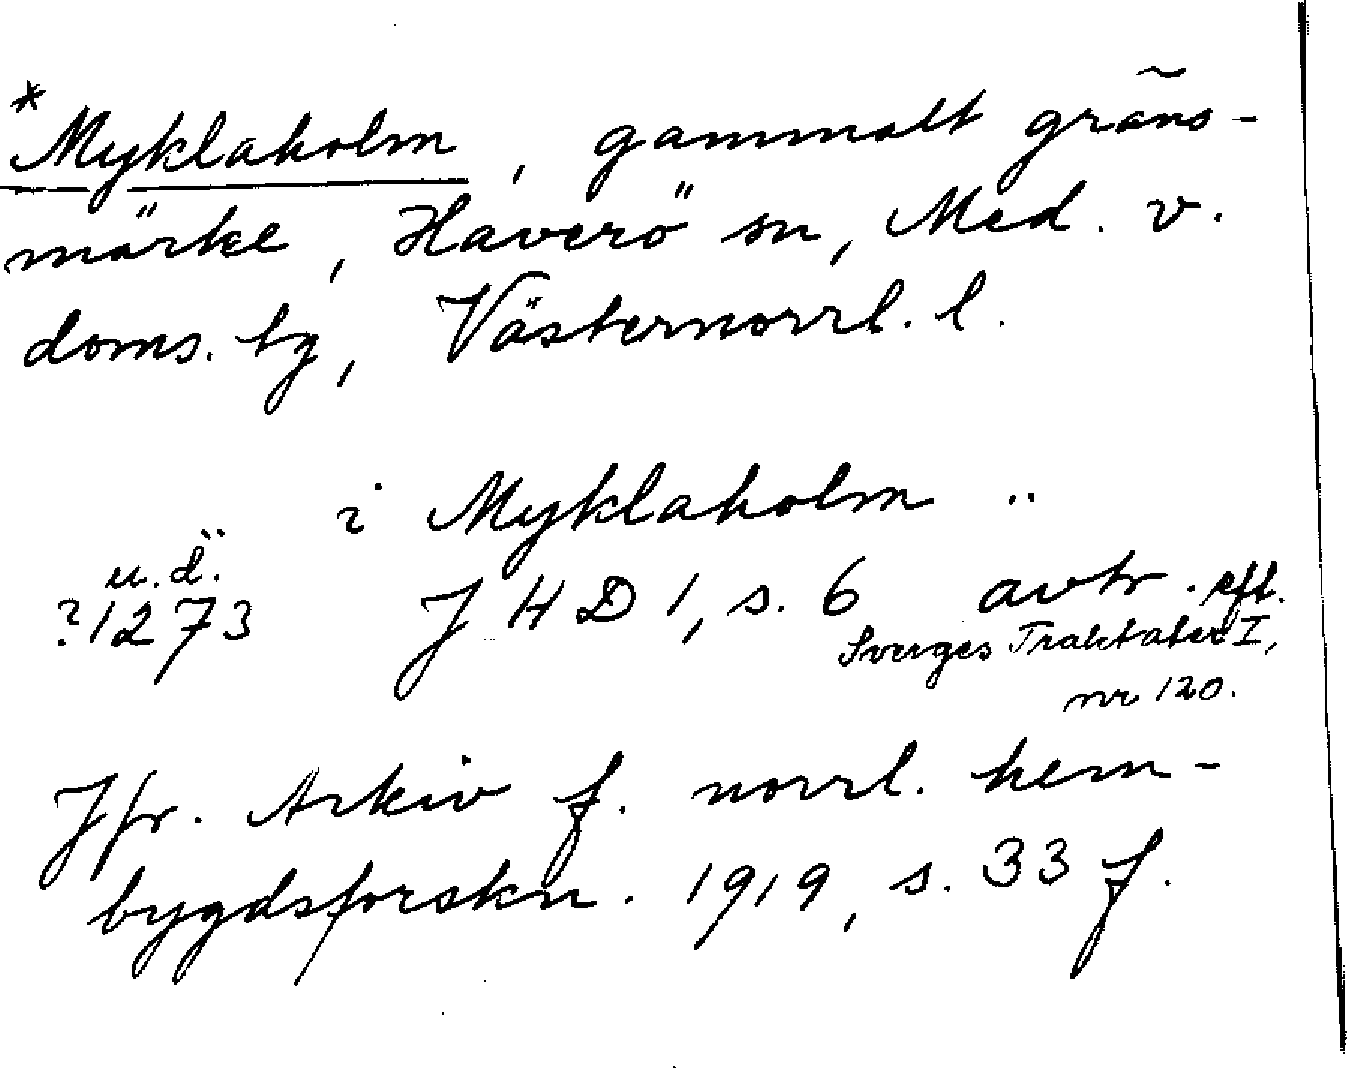 *Myklaholm, gammalt gräns-
märke, Haverö sn, Med. v.
doms. tg, Västernorrl. l.
i Myklaholm ..
u.d.
?1273 JHD 1, s. 6 avtr. eft.
Sverges Traktater I,
nr 120.
Jfr. Arkiv f. norrl. hem-
bygdsforskn. 1919, s. 33 f.